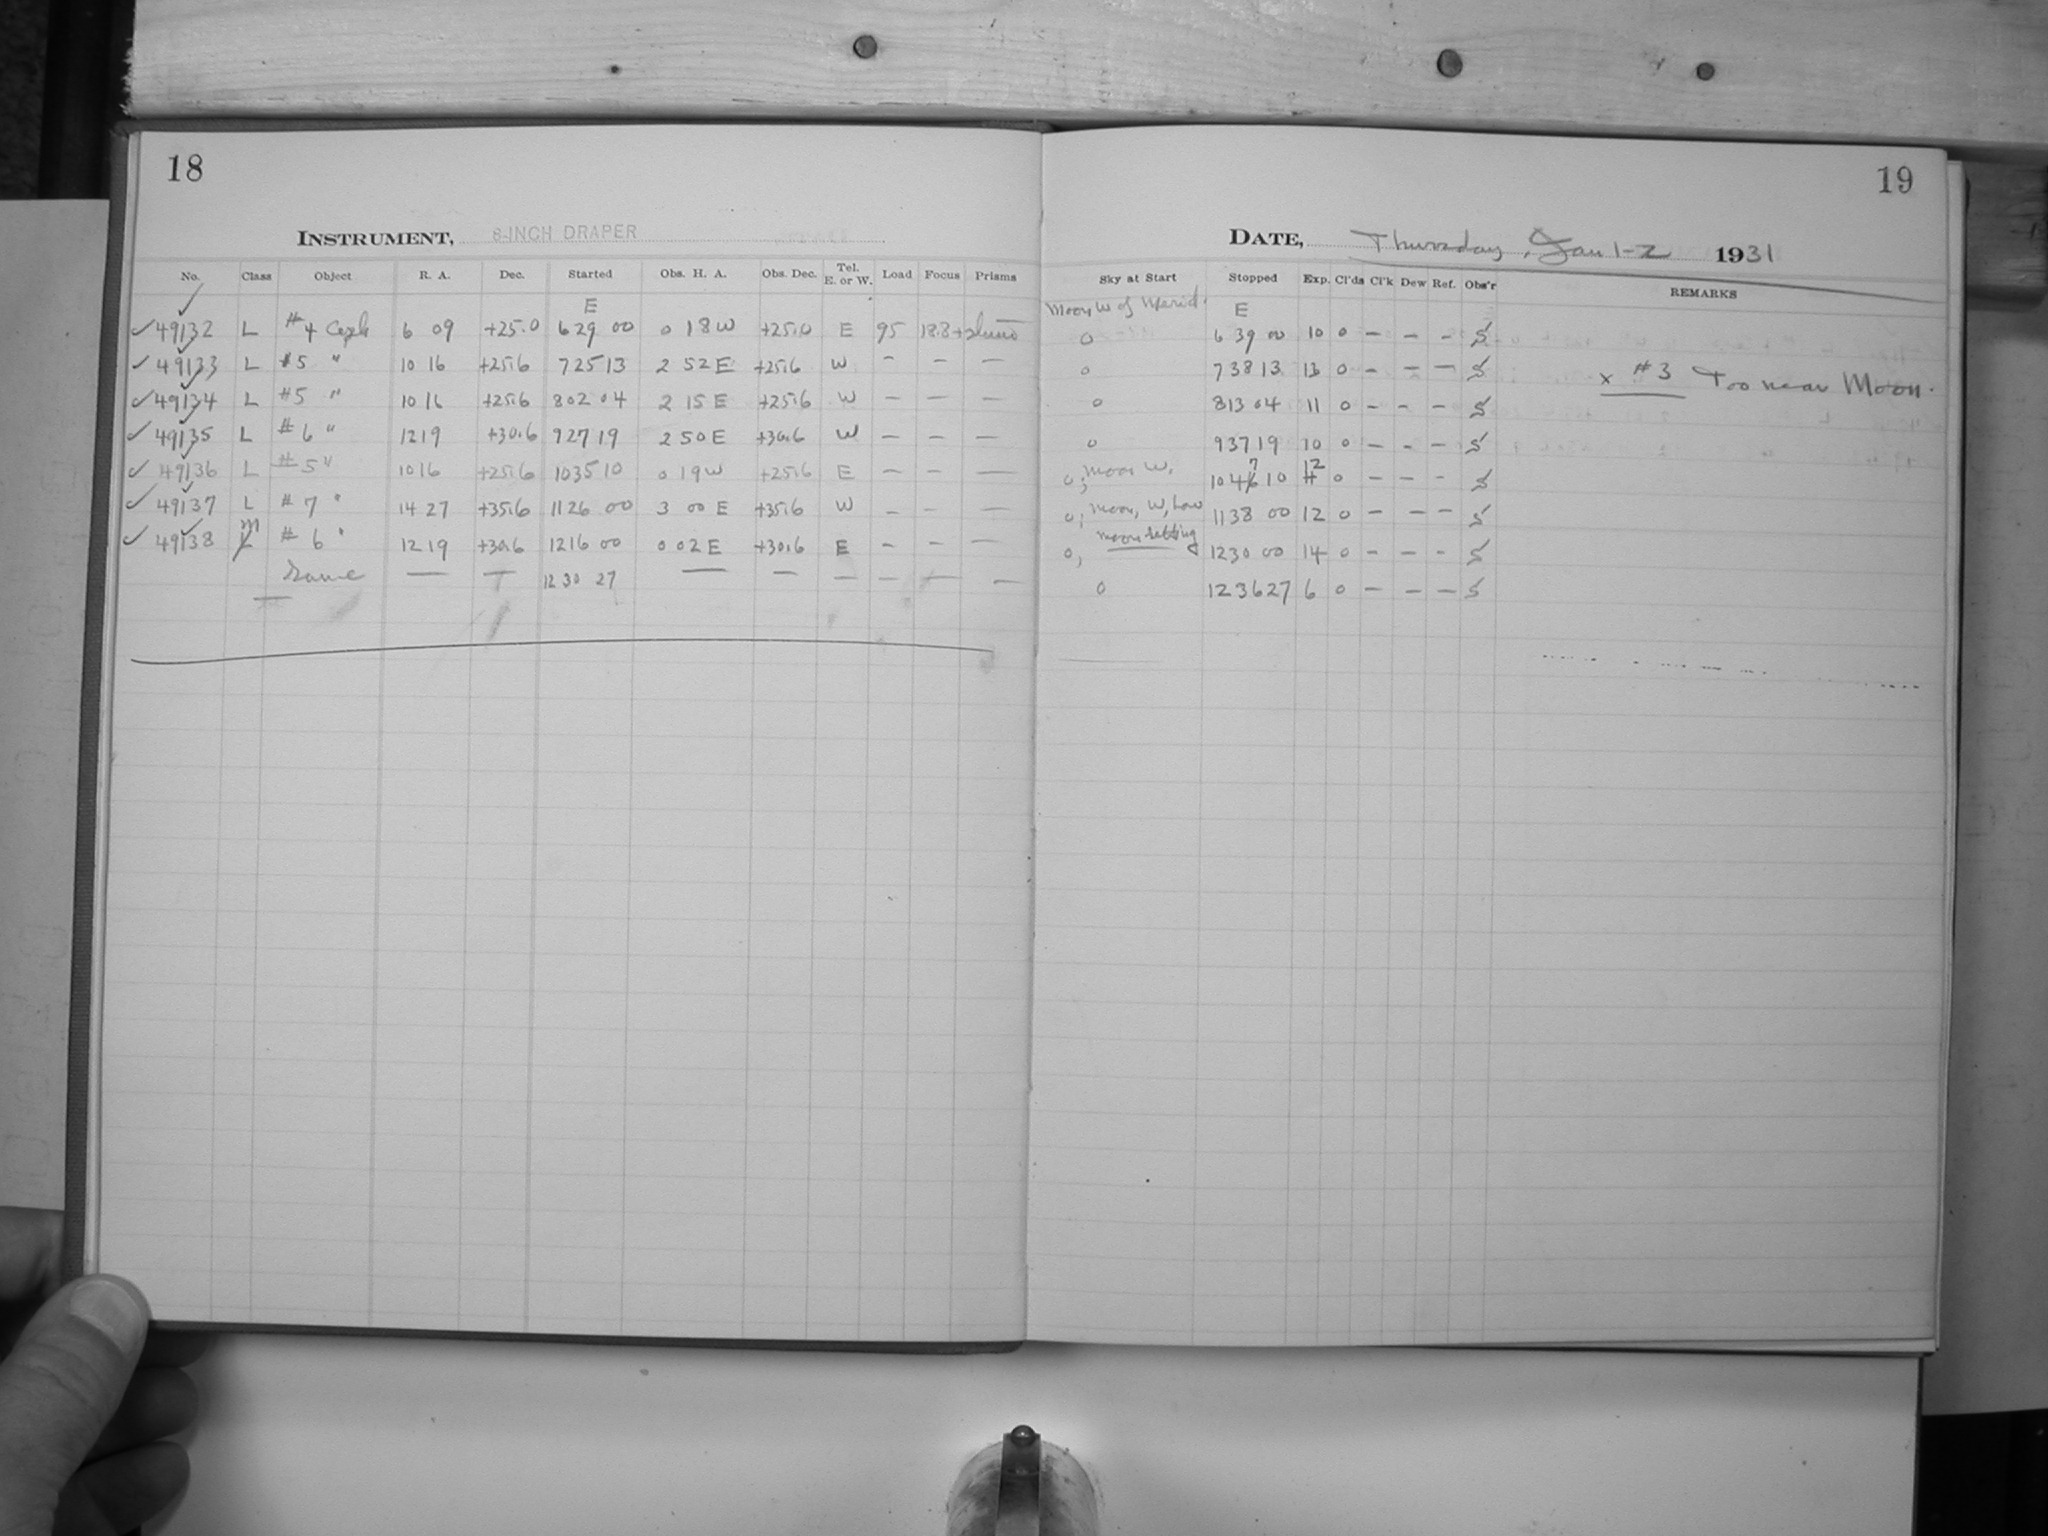 18
INSTRUMENT, 8-INCH DRAPER
No. Class Object R. A. Dec. Started Obs. H. A. Obs. Dec. Tel. E. or W. Load Focus Prisms
E
✓ 49132 L #4 6 09 +25.0 6 29 00 0 18 W +25.0 E 95 18.8+
✓ 49133 L #5 " 10 16 +25.6 7 25 13 2 52 E +25.6 W — — —
✓ 49134 L #5 " 10 16 +25.6 8 02 04 2 15 E +25.6 W — — —
✓ 49135 L #6 " 12 19 +30.6 9 27 19 2 50 E +30.6 W — — —
✓ 49136 L #5 " 10 16 +25.6 10 35 10 0 19 W +25.6 E — — —
✓ 49137 L #7 " 14 27 +35.6 11 26 00 3 00 E +35.6 W — — —
✓ 49138 M #6 " 12 19 +30.6 12 16 00 0 02 E +30.6 E — — —
Same — — 12 30 27 — — — — — —
19
DATE, Thursday, Jan 1-2 1931
Sky at Start Stopped Exp. Cl'ds Cl'k Dew Ref. Obs'r REMARKS
Moon W of Merid. E
0 6 39 00 10 0 — — — S
0 7 38 13 13 0 — — — S x #3 Too near Moon.
0 8 13 04 11 0 — — — S
0 9 37 19 10 0 — — — S
0; moon W. 10 47 10 12 0 — — — S
0; moon, W, Low 11 38 00 12 0 — — — S
0, moon setting 12 30 00 14 0 — — — S
0 12 36 27 6 0 — — — S